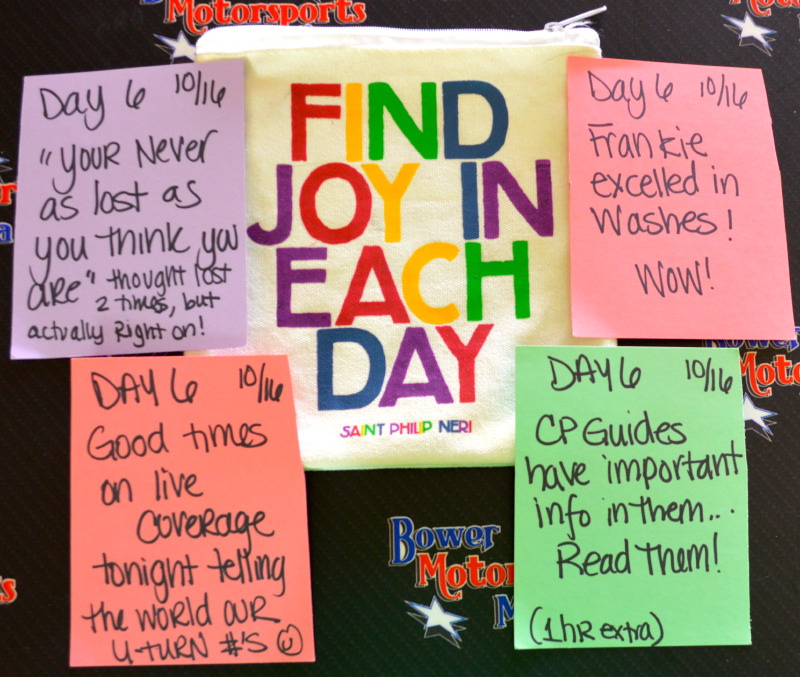 Bower
Motorsports
Day 6 10/16
"YOUR Never
as lost as
you think you
are" thought lost
2 times, but
actually Right on!
FIND
JOY IN
EACH
DAY
SAINT PHILIP NERI
Day 6 10/16
Frankie
excelled in
Washes!
WOW!
DAY 6 10/16
Good times
on live
COVERAGE
tonight telling
the world our
U-TURN #'S
DAY 6 10/16
CP Guides
have important
info in them...
Read Them!
(1 hr extra)
Bower
Motor